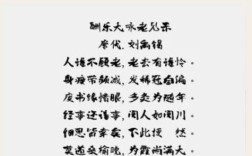 酬乐天咏老见示
唐代.刘禹锡
人谁不顾老,老去有谁怜。
身瘦带频减,发稀冠自偏。
废书缘惜眼,多炙为随年。
经事还谙事,阅人如阅川。
细思皆幸矣,下此便 然。
莫道桑榆晚,为霞尚满天。